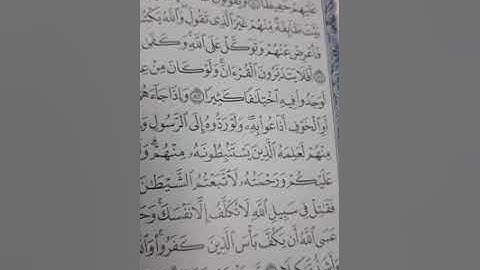 عَلَيْهِمْ حَفِيظًا ۝ وَيَقُولُونَ
بَيَّتَ طَآئِفَةٌ مِّنْهُمْ غَيْرَ ٱلَّذِى تَقُولُ وَٱللَّهُ يَكْتُبُ
فَأَعْرِضْ عَنْهُمْ وَتَوَكَّلْ عَلَى ٱللَّهِ وَكَفَىٰ
أَفَلَا يَتَدَبَّرُونَ ٱلْقُرْءَانَ وَلَوْ كَانَ مِنْ
لَوَجَدُوا۟ فِيهِ ٱخْتِلَٰفًا كَثِيرًا ۝ وَإِذَا جَآءَهُمْ
أَوِ ٱلْخَوْفِ أَذَاعُوا۟ بِهِۦ وَلَوْ رَدُّوهُ إِلَى ٱلرَّسُولِ
مِنْهُمْ لَعَلِمَهُ ٱلَّذِينَ يَسْتَنۢبِطُونَهُۥ مِنْهُمْ
عَلَيْكُمْ وَرَحْمَتُهُۥ لَٱتَّبَعْتُمُ ٱلشَّيْطَٰنَ
فَقَٰتِلْ فِى سَبِيلِ ٱللَّهِ لَا تُكَلَّفُ إِلَّا نَفْسَكَ
عَسَى ٱللَّهُ أَن يَكُفَّ بَأْسَ ٱلَّذِينَ كَفَرُوا۟